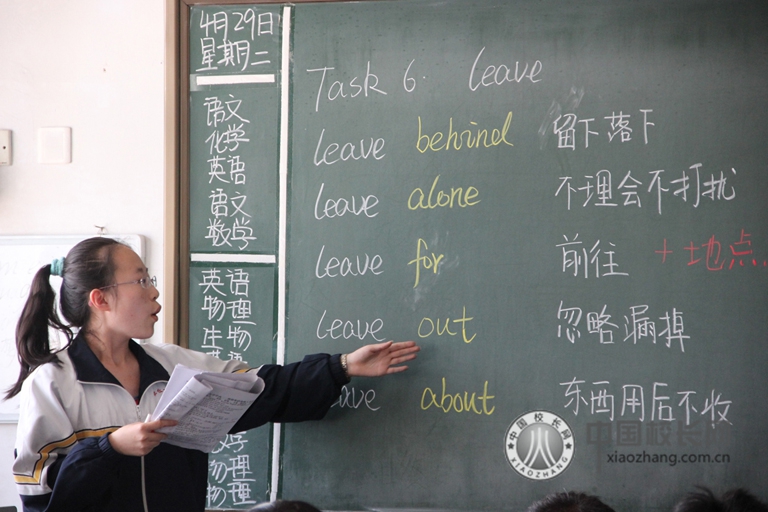 4月29日
星期二
语文
化学
英语
语文
数学
英语
物理
生物
英语
化学
物理
物理
Task 6. leave
leave behind 留下落下
leave alone 不理会不打扰
leave for 前往 + 地点
leave out 忽略漏掉
leave about 东西用后不收
中国校长网
XIAOZHANG.COM
中国校长网
xiaozhang.com.cn